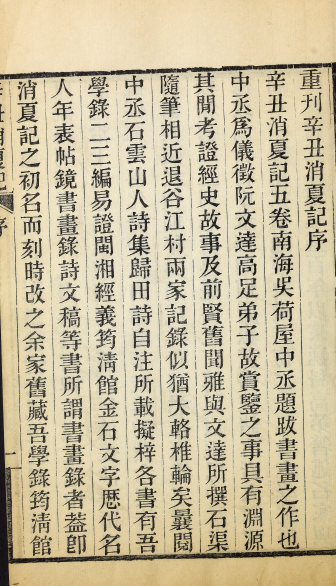 重刊辛丑消夏記序
辛丑消夏記五卷南海吳荷屋中丞題跋書畫之作也
中丞爲儀徵阮文達高足弟子故賞鑒之事具有淵源
其閒考證經史故事及前賢舊聞雅與文達所撰石渠
隨筆相近退谷江村兩家記錄似猶大輅椎輪矣曩閱
中丞石雲山人詩集歸田詩自注所載擬梓各書有吾
學錄二三編易證閩湘經義筠淸館金石文字歷代名
人年表帖鏡書畫錄詩文稿等書所謂書畫錄者葢卽
消夏記之初名而刻時改之余家舊藏吾學錄筠淸館
辛丑消夏記 序